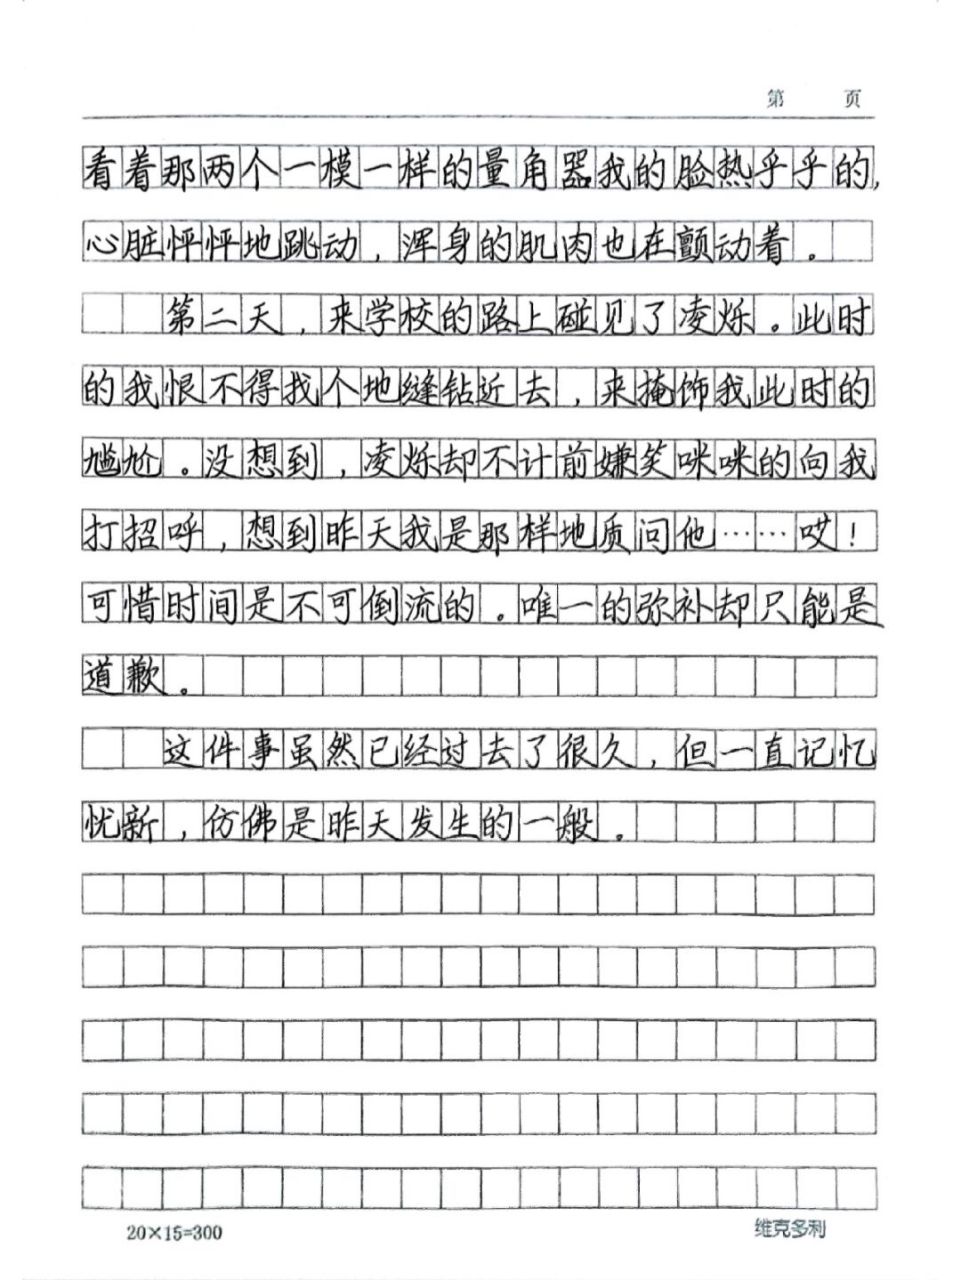 第 页
看着那两个一模一样的量角器我的脸热乎乎的,
心脏怦怦地跳动，浑身的肌肉也在颤动着。
第二天，来学校的路上碰见了凌烁。此时
的我恨不得找个地缝钻近去，来掩饰我此时的
尴尬。没想到，凌烁却不计前嫌笑咪咪的向我
打招呼，想到昨天我是那样地质问他……哎！
可惜时间是不可倒流的。唯一的弥补却只能是
道歉。
这件事虽然已经过去了很久，但一直记忆
忧新，仿佛是昨天发生的一般。
20×15=300 维克多利